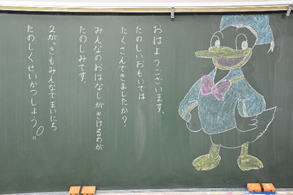 おはようございます。
たのしいおもいでは
たくさんできましたか？
みんなのおはなしがきけるのが
たのしみです。
2がっきもみんなでまいにち
たのしくせいかつしよう